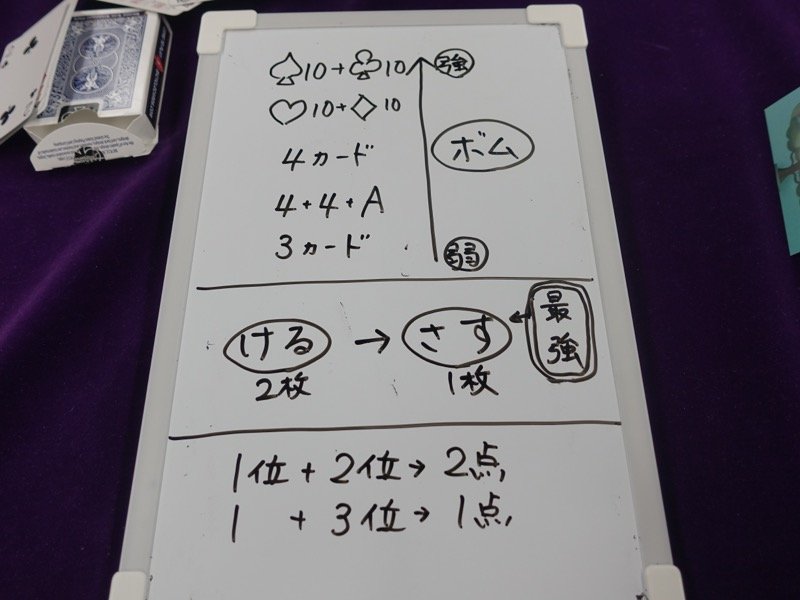 ♠10+♣10 強
♡10+♢10
ボム
4カード
4+4+A
3カード 弱
ける → さす 最強
2枚 1枚
1位+2位→2点
1 +3位→1点